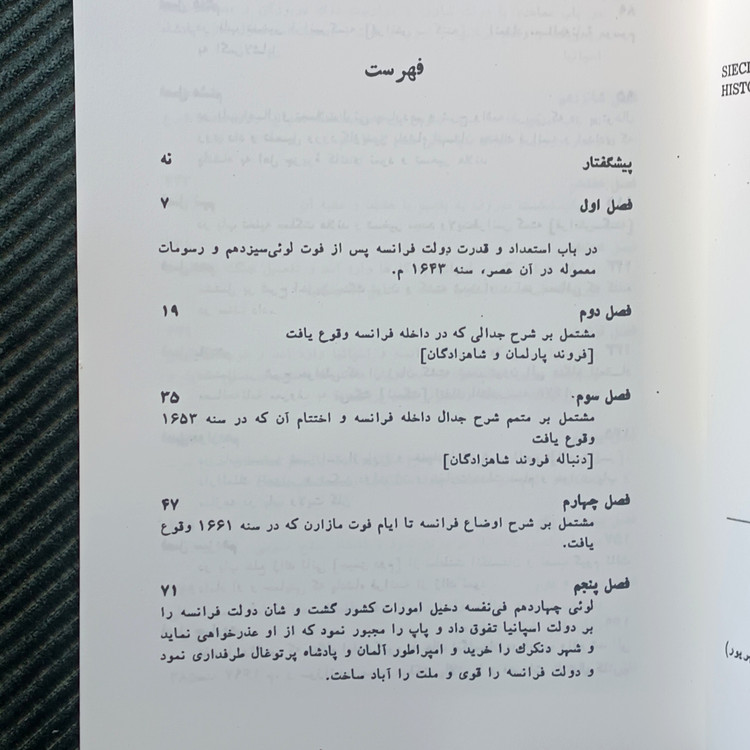 فهرست
پیشگفتار نه
فصل اول ۷
در باب استعداد و قدرت دولت فرانسه پس از فوت لوئی‌سیزدهم و رسومات
معموله در آن عصر، سنه ۱۶۴۳ م.
فصل دوم ۱۹
مشتمل بر شرح جدالی که در داخله فرانسه وقوع یافت
[فروند پارلمان و شاهزادگان]
فصل سوم. ۳۵
مشتمل بر متمم شرح جدال داخله فرانسه و اختتام آن که در سنه ۱۶۵۳
وقوع یافت
[دنباله فروند شاهزادگان]
فصل چهارم ۴۷
مشتمل بر شرح اوضاع فرانسه تا ایام فوت مازارن که در سنه ۱۶۶۱ وقوع
یافت.
فصل پنجم ۷۱
لوئی چهاردهم فی‌نفسه دخیل امورات کشور گشت و شأن دولت فرانسه را
بر دولت اسپانیا تفوق داد و پاپ را مجبور نمود که از او عذرخواهی نماید
و شهر دنکرک را خرید و امپراطور آلمان و پادشاه پرتوغال طرفداری نمود
و دولت فرانسه را قوی و ملت را آباد ساخت.